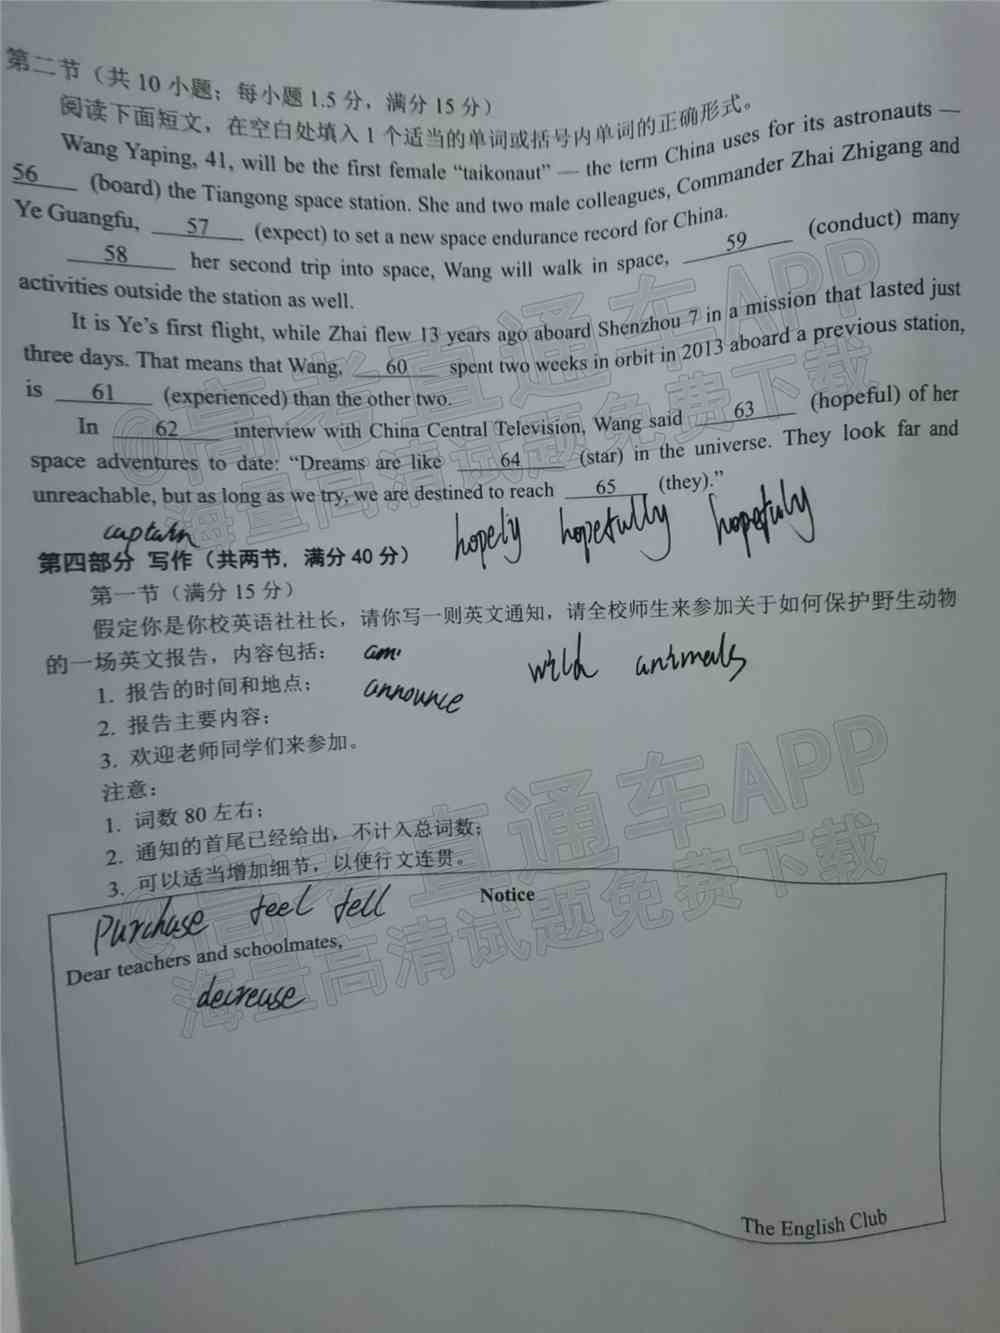 第二节（共 10 小题；每小题 1.5 分，满分 15 分）
阅读下面短文，在空白处填入 1 个适当的单词或括号内单词的正确形式。
Wang Yaping, 41, will be the first female “taikonaut” — the term China uses for its astronauts —
56 (board) the Tiangong space station. She and two male colleagues, Commander Zhai Zhigang and
Ye Guangfu, 57 (expect) to set a new space endurance record for China.
58 her second trip into space, Wang will walk in space, 59 (conduct) many
activities outside the station as well.
It is Ye’s first flight, while Zhai flew 13 years ago aboard Shenzhou 7 in a mission that lasted just
three days. That means that Wang, 60 spent two weeks in orbit in 2013 aboard a previous station,
is 61 (experienced) than the other two.
In 62 interview with China Central Television, Wang said 63 (hopeful) of her
space adventures to date: “Dreams are like 64 (star) in the universe. They look far and
unreachable, but as long as we try, we are destined to reach 65 (they).”
captain hopely hopefully hopefuly
第四部分 写作（共两节，满分 40 分）
第一节（满分 15 分）
假定你是你校英语社社长，请你写一则英文通知，请全校师生来参加关于如何保护野生动物
的一场英文报告，内容包括： am. wild animals
1. 报告的时间和地点； announce
2. 报告主要内容；
3. 欢迎老师同学们来参加。
注意：
1. 词数 80 左右；
2. 通知的首尾已经给出，不计入总词数；
3. 可以适当增加细节，以使行文连贯。
Notice
purchase feel fell
Dear teachers and schoolmates,
decrease
The English Club
@高考直通车APP
海量高清试题免费下载
@高考直通车APP
海量高清试题免费下载